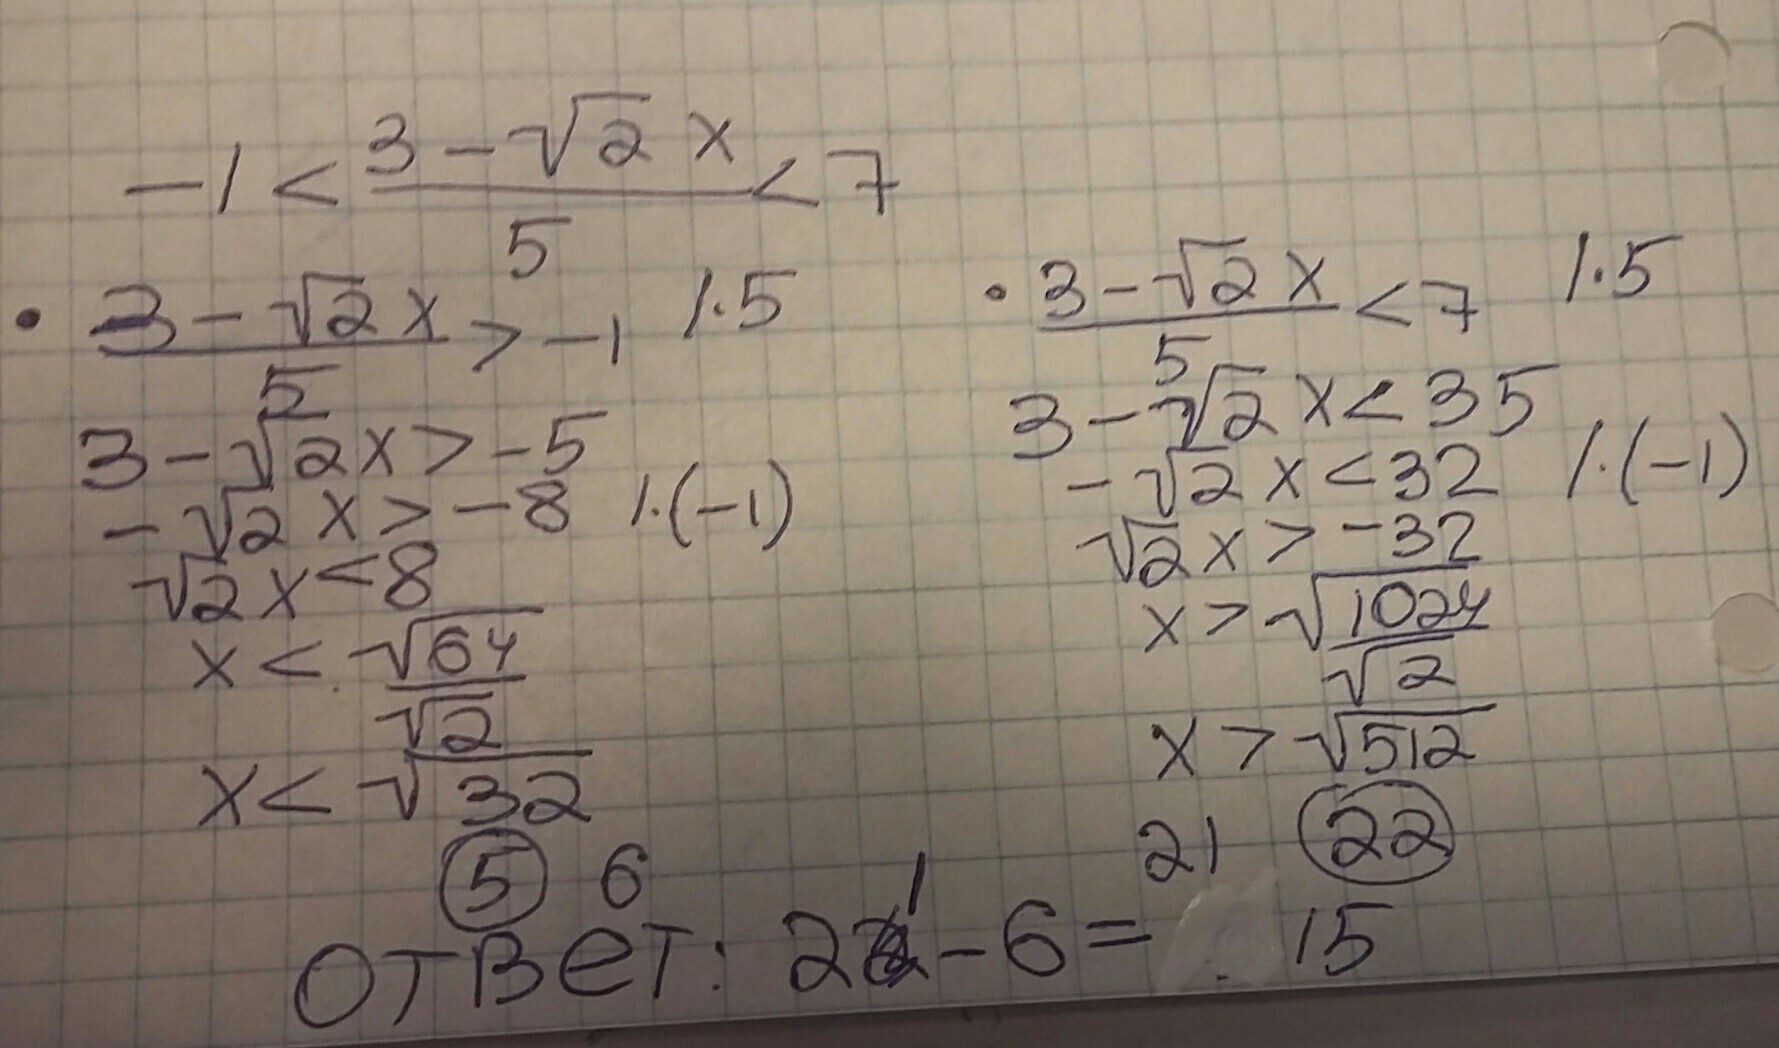 -1 < (3 - √2 x)/5 < 7
• (3 - √2 x)/5 > -1 /·5
3 - √2 x > -5
- √2 x > -8 /·(-1)
√2 x < 8
x < √64/√2
x < √32
5 6
• (3 - √2 x)/5 < 7 /·5
3 - √2 x < 35
- √2 x < 32 /·(-1)
√2 x > -32
x > √1024/√2
x > √512
21 22
ответ: 21 - 6 = 15